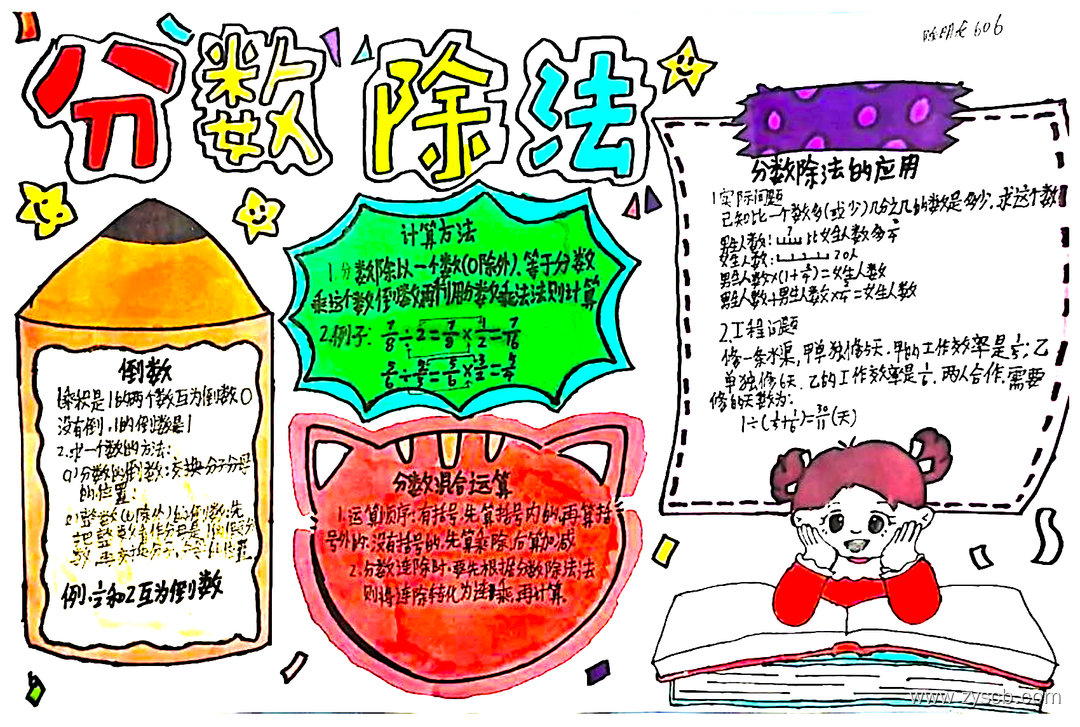 分数除法
606
倒数
1.乘积是1的两个数互为倒数 0
没有倒,1的倒数是1
2.求一个数的方法:
(1)分数的倒数:交换分子分母
的位置;
(2)整数(0除外)的倒数:先
把整数看作分母是1的假分
数,再交换分子、分母的位置
互为倒数
计算方法
1.分数除以一个数(0除外),等于分数
乘这个数倒数再利用分数乘法法则计算
2.例子: 7/8÷2=7/8×1/2=7/16
分数混合运算
1.运算顺序:有括号,先算括号内的,再算括
号外的;没有括号的,先算乘除,后算加减
2.分数连除时,要先根据分数除法法
则将连除转化为连乘,再计算。
分数除法的应用
1.实际问题
已知比一个数多(或少)几分之几的数是多少,求这个数
男生人数: 比女生人数多
女生人数: 20人
2.工程问题
修一条水渠,甲单独修5天,甲的工作效率是1/5;乙
单独修6天,乙的工作效率是1/6,两人合作,需要
修的天数为:
1÷(1/5+1/6)=30/11(天)
www.zyscb.com